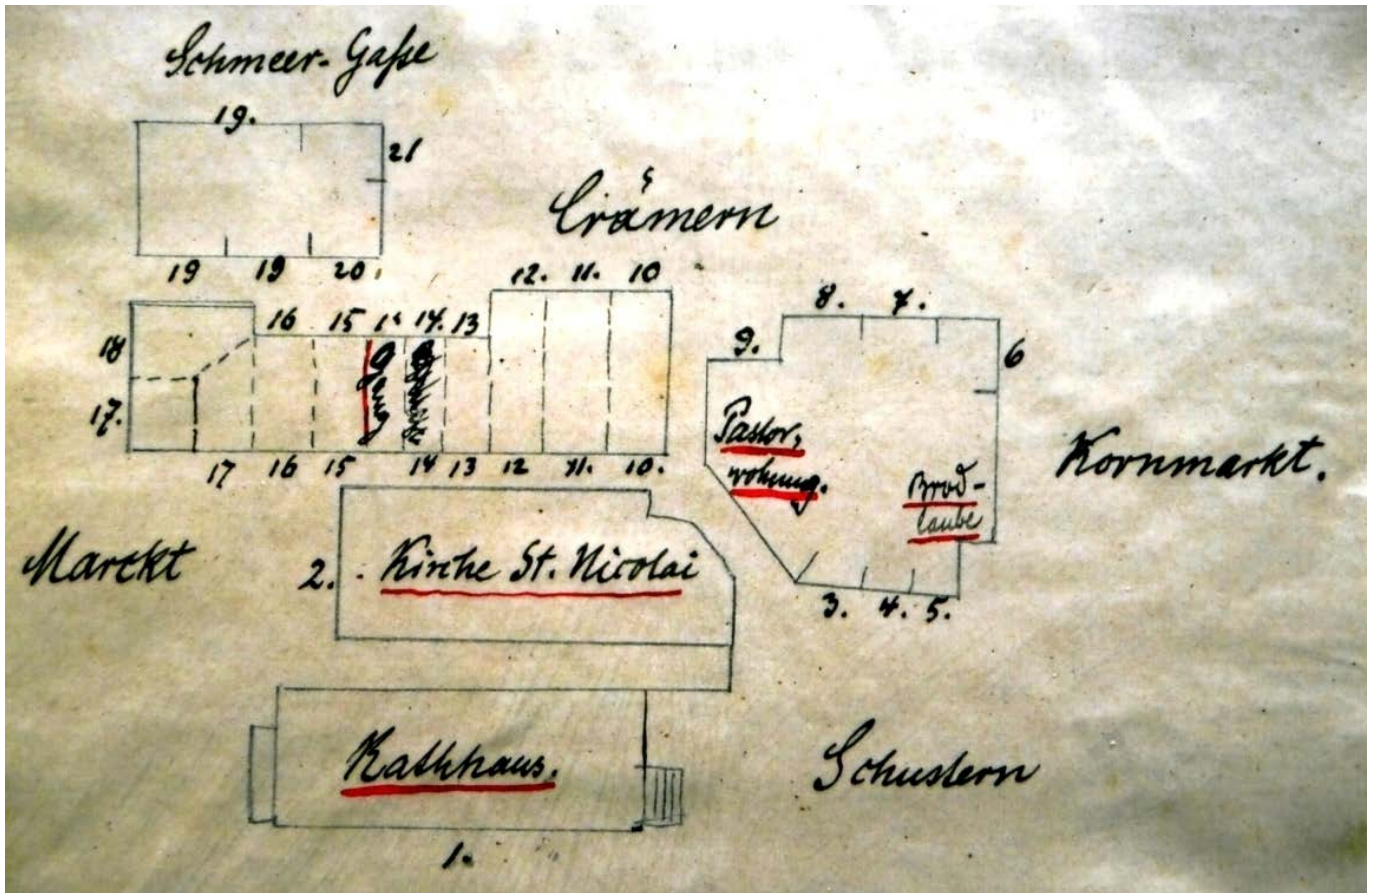 Schmeer-Gaße
19.
21
19 19 20.
Crämern
12. 11. 10
16 15 14. 13
18
17.
17 16 15 14 13 12 11. 10.
8. 7.
9.
6
Pastor,
wohnung.
Brod-
laube
3. 4. 5.
Kornmarkt.
Marckt
2. Kirche St. Nicolai
Rathhaus.
1.
Schustern